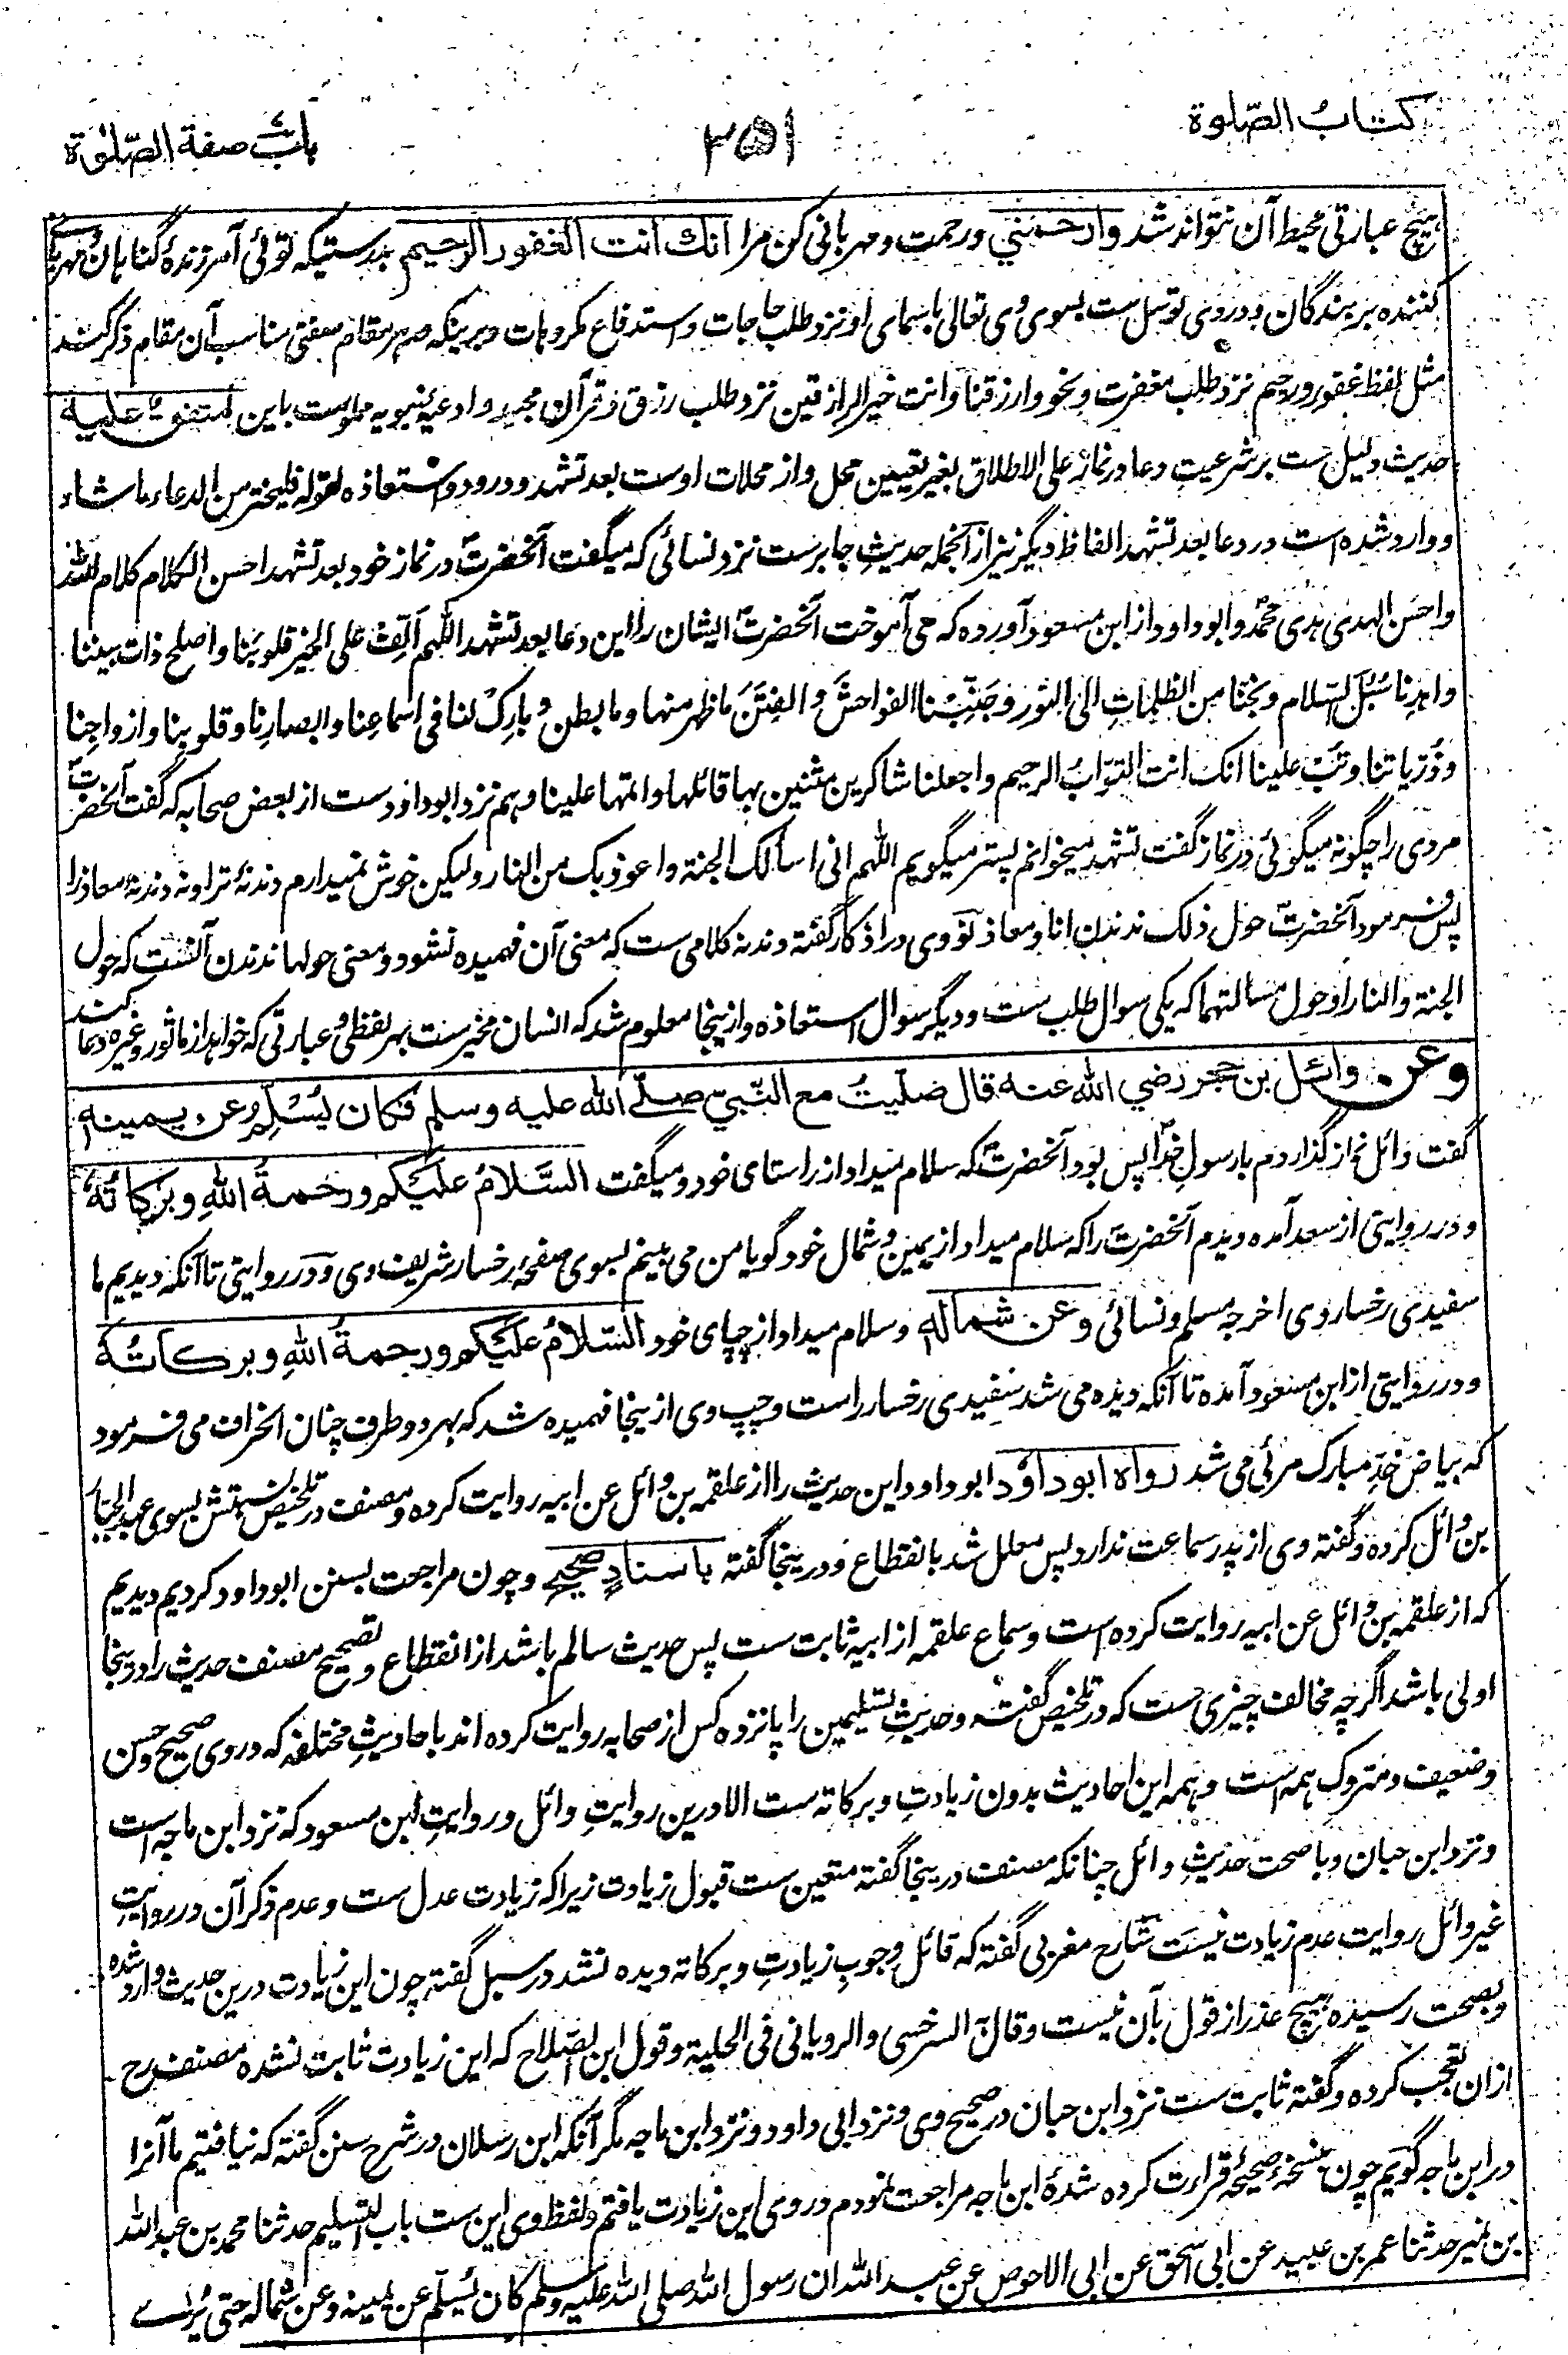 كتاب الصّلوة
۳۵۱
باب صفة الصّلوٰة
ہیچ عبارتی محیط آن نتواند شد وارحمني ورحمت ومهربانی کن مرا انك انت الغفور الرحيم بدرستیکه توئی آمرزندهٔ گناہان ومہربانی
کننده بر بندگان ودروی توسل ست بسوی وی تعالی باسمای او نزد طلب حاجات واستدفاع مکروہات وبرینکه در هر مقام صفتی مناسب آن مقام ذکر کنند
مثل لفظ غفور ورحیم نزد طلب مغفرت ونحو وارزقنا وانت خیر الرازقین نزد طلب رزق وقرآن مجید وادعیه نبویه مملوست باین متفق عليه
حدیث دلیل ست بر شرعیت دعا در نماز علی الاطلاق بغیر تعیین محل واز محلات اوست بعد تشهد ودرود واستعاذه لقوله فلیختر من الدعاء ما شاء
ووارد شده است در دعا بعد تشهد الفاظ دیگر نیز ازانجمله حدیث جابرست نزد نسائی که میگفت آنحضرتؐ در نماز خود بعد تشهد احسن الکلام کلام الله
واحسن الہدی ہدی محمدؐ وابوداود از ابن مسعود آورده که می آموخت آنحضرتؐ ایشان را این دعا بعد تشهد اللهم الّف علی الخیر قلوبنا واصلح ذات بیننا
واہدنا سُبُل السّلام ونجّنا من الظلمات الی النور وجنّبنا الفواحش والفتن ما ظہر منہا وما بطن وبارک لنا فی اسماعنا وابصارنا وقلوبنا وازواجنا
وذرّیاتنا وتب علینا انک انت التوّاب الرحیم واجعلنا شاکرین مثنین بہا قائلہا واتمہا علینا وہم نزد ابوداودست از بعض صحابه که گفت آنحضرتؐ
مردی را چگونه میگوئی در نماز گفت تشهد میخوانم پستر میگویم اللهم انی اسألک الجنة واعوذ بک من النار ولیکن خوش نمیدارم دندنهٔ ترا ونه دندنهٔ معاذ را
پس فرمود آنحضرتؐ حول ذلک ندندن انا ومعاذ نووی در اذکار گفته دندنه کلامی ست که معنی آن فہمیده نشود ومعنی حولہا ندندن آنست که حول
الجنة والنار او حول مسألتہما که یکی سوال طلب ست ودیگر سوال استعاذه وازینجا معلوم شد که انسان مخیرست بہر لفظی وعبارتی که خواہد از ماثور وغیره دعا کند
وعن وائل بن حجر رضي الله عنه قال صلّيت مع النّبيّ صلّى الله عليه وسلم فكان يسلّم عن يمينه
گفت وائل نماز گذاردم با رسول خداؐ پس بود آنحضرتؐ که سلام میداد از راستای خود ومیگفت السّلام عليكم ورحمة الله وبركاته
ودر روایتی از سعد آمده دیدم آنحضرتؐ را که سلام میداد از یمین وشمال خود گویا من می بینم بسوی صفحهٔ رخسار شریف وی ودر روایتی تا آنکه دیدیم ما
سفیدی رخسار وی اخرجه مسلم ونسائی وعن شماله وسلام میداد از چپای خود السّلام عليكم ورحمة الله وبركاته
ودر روایتی از ابن مسعود آمده تا آنکه دیده می شد سفیدی رخسار راست وچپ وی ازینجا فہمیده شد که بہر دو طرف چنان انحراف می فرمود
که بیاض خدّ مبارک مرئی می شد رواه ابوداود ابوداود این حدیث را از علقمه بن وائل عن ابیه روایت کرده ومصنف در تلخیص نسبتش بسوی عبدالجبار
بن وائل کرده وگفته وی از پدر سماعت ندارد پس معلل شد بانقطاع ودرینجا گفته باسناد صحيح وچون مراجعت بسنن ابوداود کردیم دیدیم
که از علقمه بن وائل عن ابیه روایت کرده است وسماع علقمه از ابیه ثابت ست پس حدیث سالم باشد از انقطاع وتصحیح مصنف حدیث را درینجا
اولی باشد اگرچه مخالف چیزی ست که در تلخیص گفته وحدیث تسلیمین را پانزده کس از صحابه روایت کرده اند باحادیث مختلفه که در وی صحیح وحسن
وضعیف ومتروک ہمه است وہمه این احادیث بدون زیادت وبرکاته ست الا درین روایت وائل وروایت ابن مسعود که نزد ابن ماجه است
ونزد ابن حبان وبا صحت حدیث وائل چنانکه مصنف درینجا گفته متعین ست قبول زیادت زیرا که زیادت عدل ست وعدم ذکر آن در روایت
غیر وائل روایت عدم زیادت نیست شارح مغربی گفته که قائل وجوب زیادت وبرکاته دیده نشد در سبل گفته چون این زیادت درین حدیث وارد شده
وبصحت رسیده ہیچ عذر از قول بآن نیست وقال السرخسی والرویانی فی الحلیة وقول ابن الصلاح که این زیادت ثابت نشده مصنف رح
ازان تعجب کرده وگفته ثابت ست نزد ابن حبان در صحیح وی ونزد ابی داود ونزد ابن ماجه مگر آنکه ابن رسلان در شرح سنن گفته که نیافتیم ما آنرا
در ابن ماجه گویم چون بنسخهٔ صحیحهٔ قراءت کرده شدهٔ ابن ماجه مراجعت نمودم در وی این زیادت یافتم ولفظ وی این ست باب التسلیم حدثنا محمد بن عبدالله
بن نمیر حدثنا عمر بن عبید عن ابی اسحق عن ابی الاحوص عن عبد الله ان رسول الله صلی الله علیه وسلم کان یسلّم عن یمینه وعن شماله حتی یُرٰے